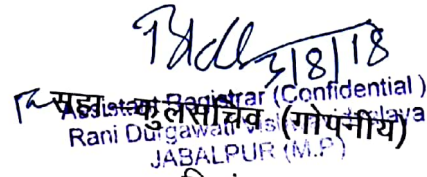 3/8/18
सहा. कुलसचिव (गोपनीय)
Assistant Registrar (Confidential)
Rani Durgawati
JABALPUR (M.P)